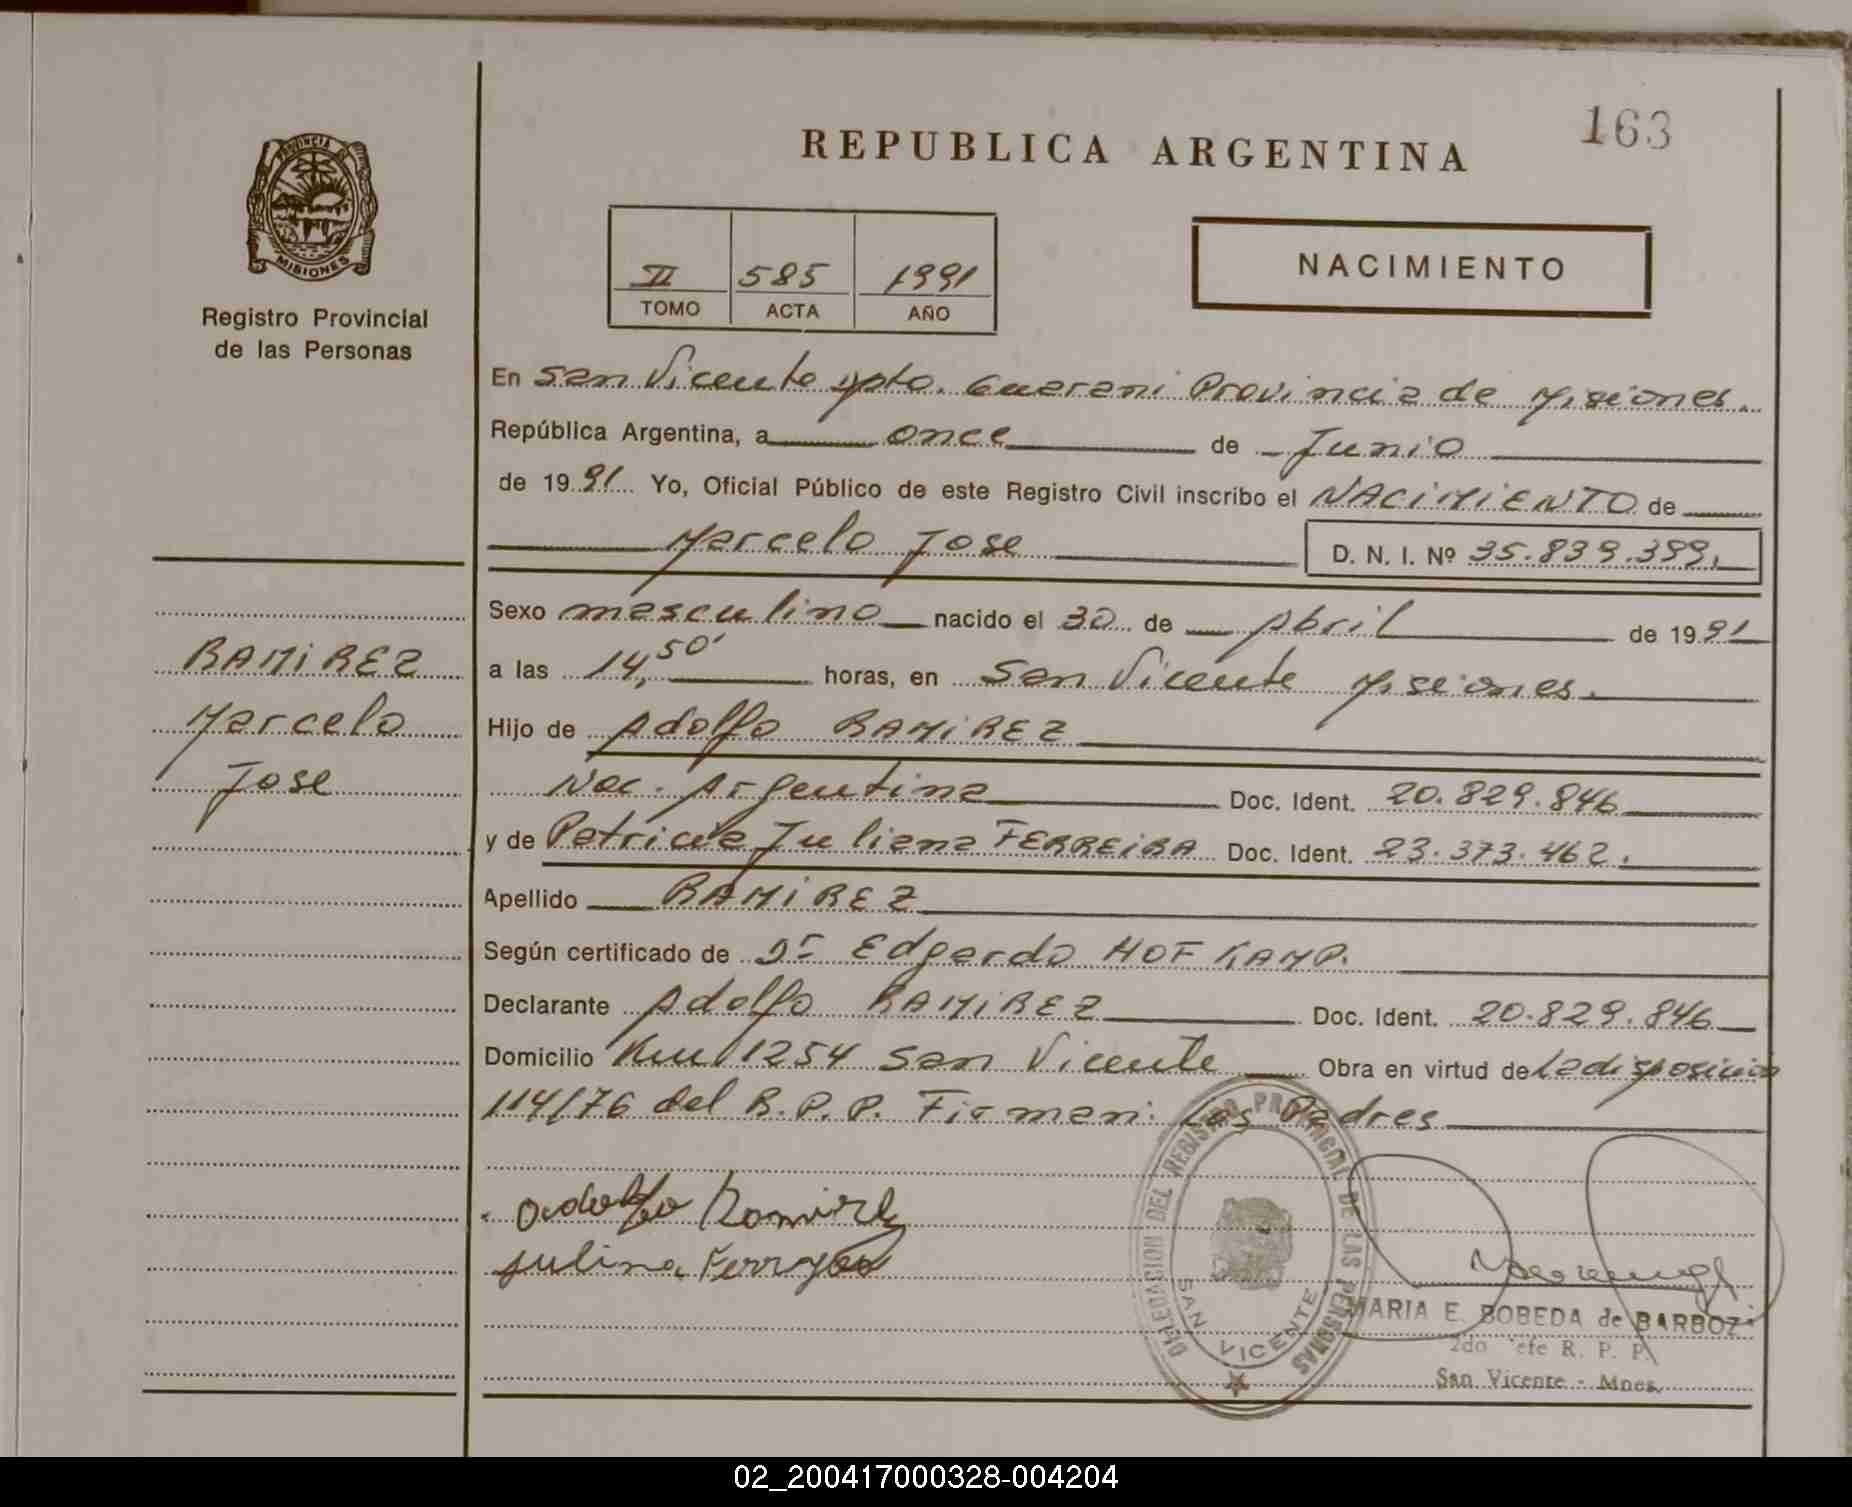 163
REPUBLICA ARGENTINA
PROVINCIA DE
MISIONES
Registro Provincial
de las Personas
II 585 1991
TOMO ACTA AÑO
NACIMIENTO
En San Vicente Dpto. Guarani Provincia de Misiones.
República Argentina, a once de Junio
de 1991 Yo, Oficial Público de este Registro Civil inscribo el NACIMIENTO de
Marcelo Jose D. N. I. Nº 35.839.399.
Sexo masculino nacido el 30 de Abril de 1991
a las 14,50' horas, en San Vicente Misiones.
Hijo de Adolfo RAMIREZ
Nac. Argentina Doc. Ident. 20.829.846
y de Patricia Juliana FERREIRA Doc. Ident. 23.373.462.
Apellido RAMIREZ
Según certificado de Dr Edgardo HOFKAMP.
Declarante Adolfo RAMIREZ Doc. Ident. 20.829.846
Domicilio Km 1254 San Vicente Obra en virtud de La disposición
114/76 del R.P.P. Firman: Los Padres
RAMIREZ
Marcelo
Jose
Adolfo Ramirez
DELEGACION DEL REGISTRO PROVINCIAL DE LAS PERSONAS
SAN VICENTE
MARIA E. BOBEDA de BARBOZ
2do Jefe R. P. P.
San Vicente - Mnes.
02_200417000328-004204